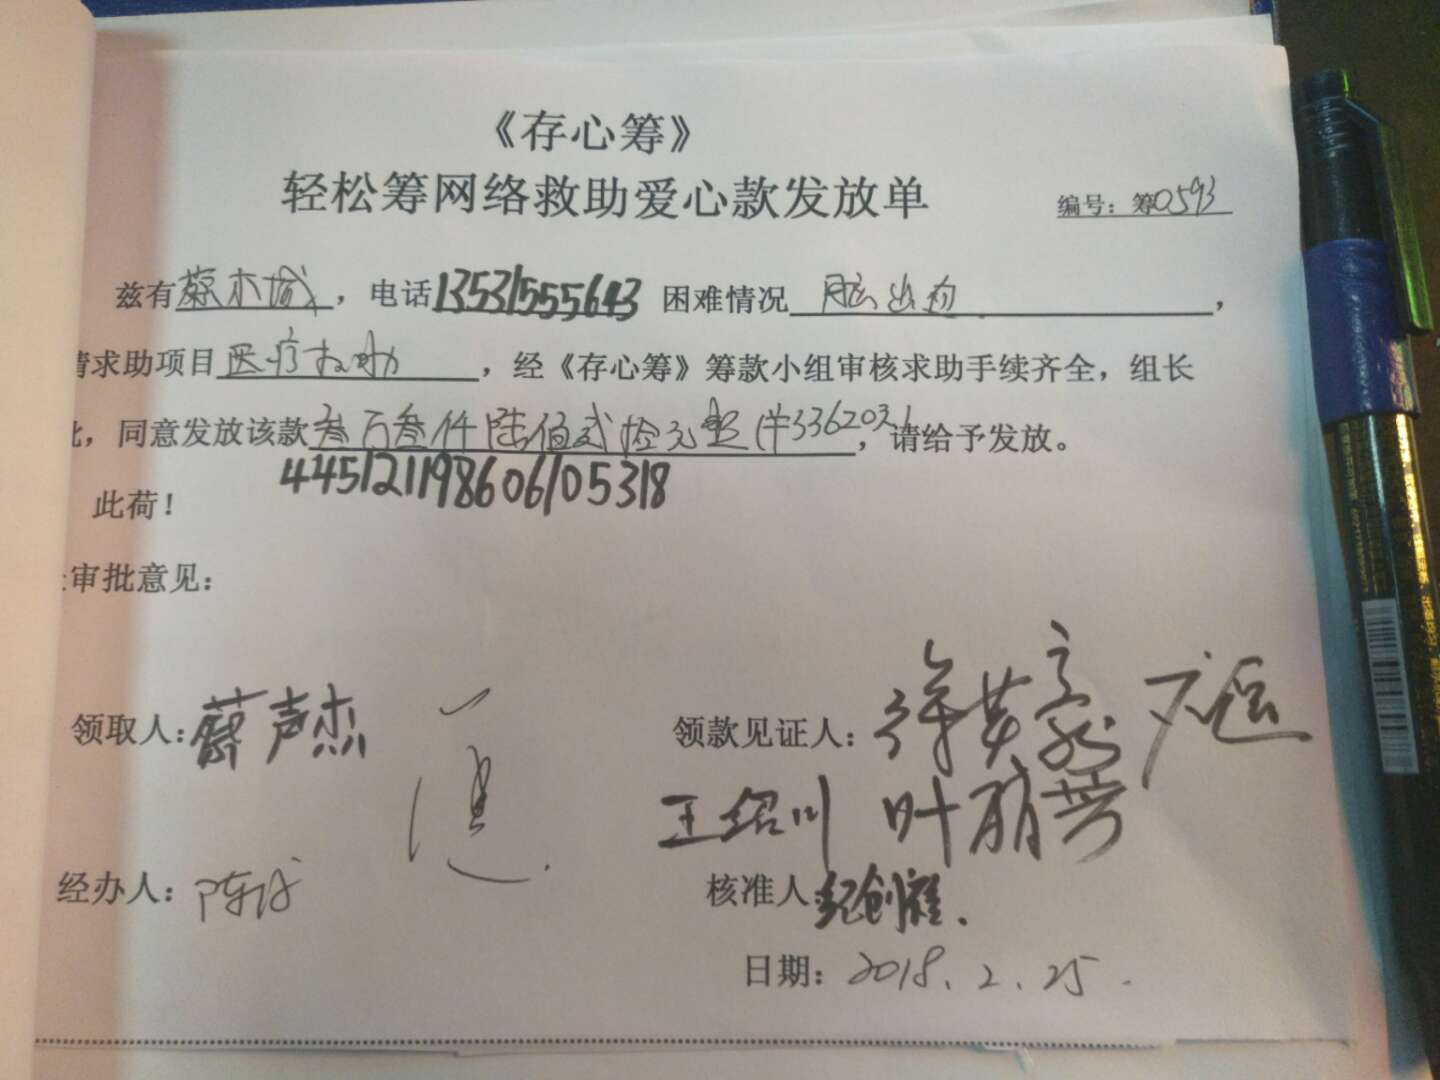 《存心筹》
轻松筹网络救助爱心款发放单
编号：筹0593
兹有蔡木城，电话13531555643 困难情况 脑出血，
请求助项目医疗救助，经《存心筹》筹款小组审核求助手续齐全，组长
此，同意发放该款叁万叁仟陆佰贰拾元整（¥33620），请给予发放。
445121198606105318
此荷！
审批意见：
领取人：蔡声杰
领款见证人：
王绍川 叶丽芳
经办人：陈
核准人 纪创雄.
日期：2018.2.25.